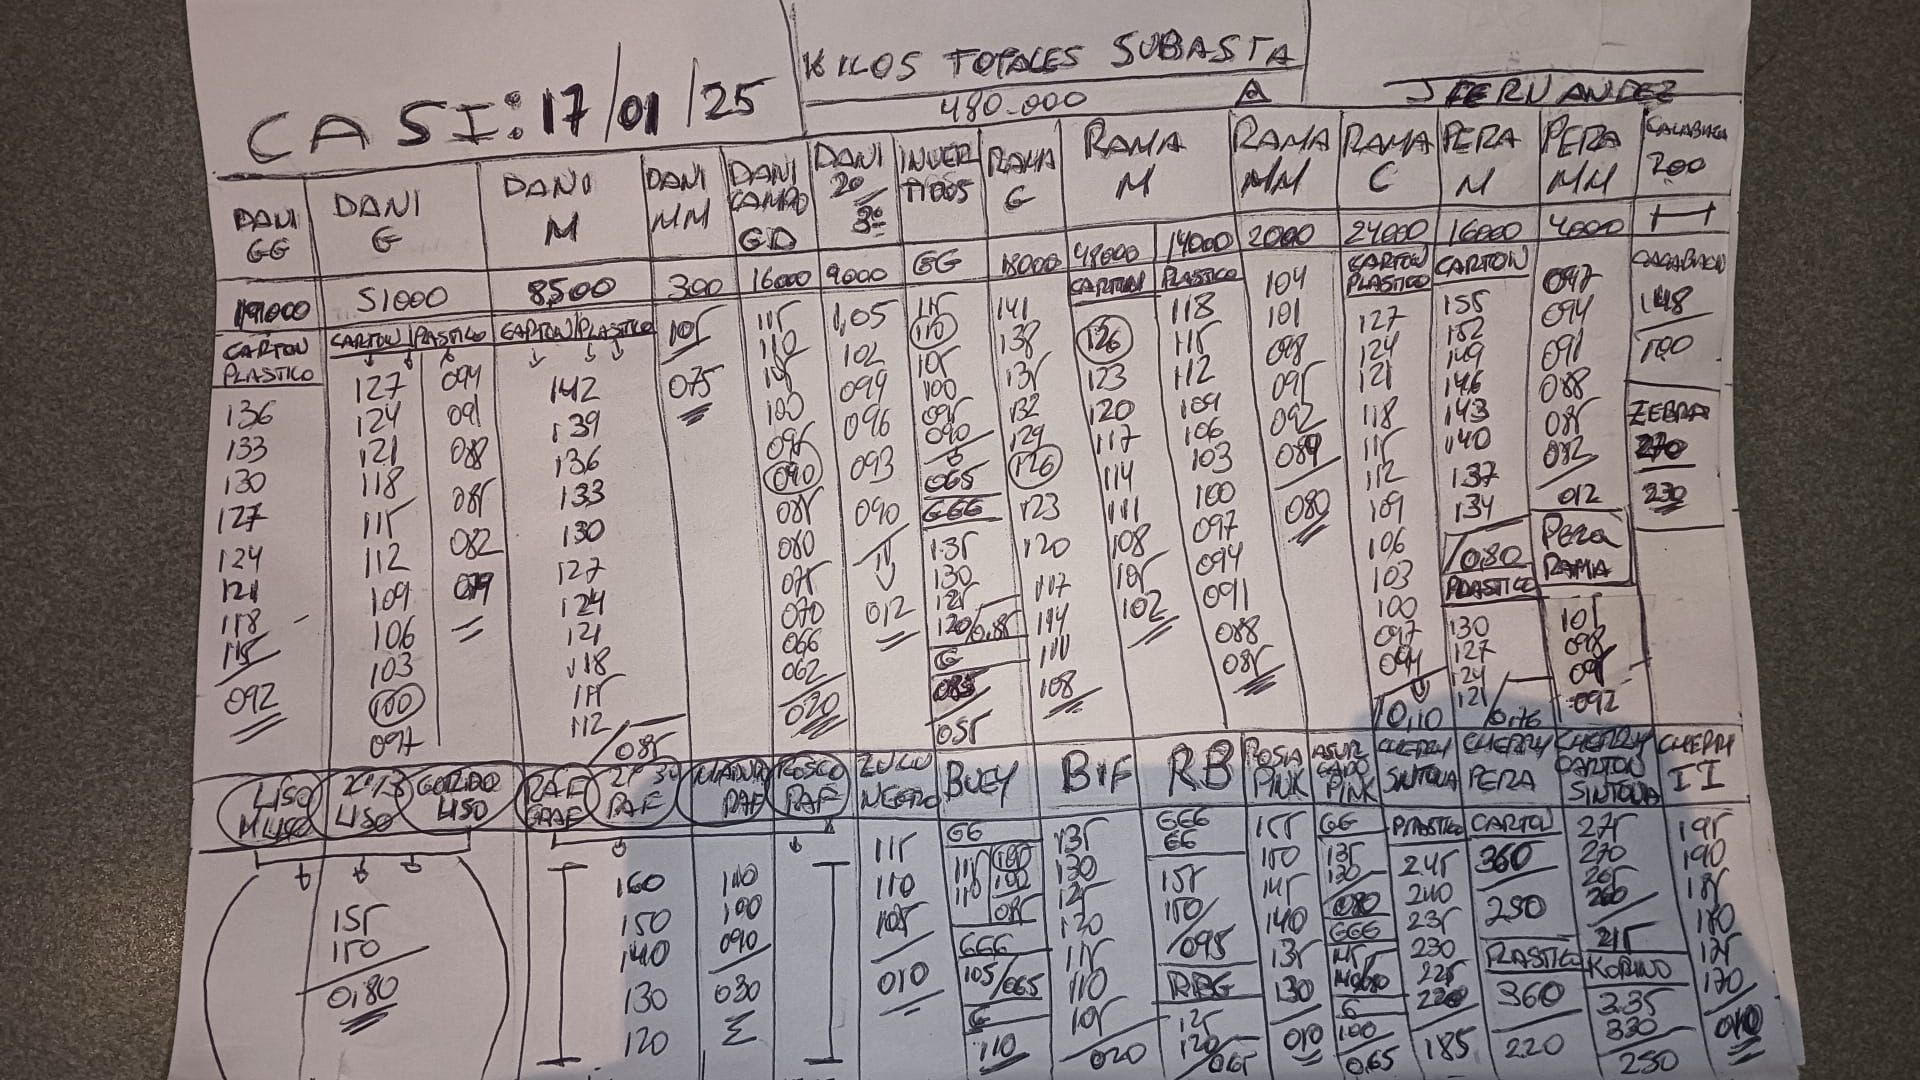 KILOS TOTALES SUBASTA
CASI: 17/01/25
480.000
A
J FERNANDEZ
DANI GG
DANI G
DANI M
DANI MM
DANI CAMPO GD
DANI 2º/3º
INVERTIDOS
RAMA G
RAMA M
RAMA MM
RAMA C
PERA M
PERA MM
CALABACA 200
19000
51000
8500
300
16000
9000
GG
18000
48000
14000
2000
24000
16000
4000
CARTON PLASTICO
CARTON PLASTICO
CARTON/PLASTICO
CARTON
PLASTICO
CARTON PLASTICO
CARTON
136
133
130
127
124
121
118
115
092
127
124
121
118
115
112
109
106
103
100
097
094
091
088
085
082
079
142
139
136
133
130
127
124
121
118
115
112
085
105
075
115
110
105
100
095
090
085
080
075
070
066
062
020
1,05
102
099
096
093
090
012
115
110
105
100
095
090
065
GGG
1.35
130
125
120/0.85
G
085
055
141
138
135
132
129
126
123
120
117
114
111
108
126
123
120
117
114
111
108
105
102
118
115
112
109
106
103
100
097
094
091
088
085
104
101
098
095
092
089
080
127
124
121
118
115
112
109
106
103
100
097
094
0,10
155
152
149
146
143
140
137
134
0,80
PLASTICO
130
127
124
121
0,76
097
094
091
088
085
082
012
PERA RAMA
101
098
095
092
148
100
ZEBRA
270
230
LISO M LISO
2º/3 LISO
GORDO LISO
RAF GRAF
2º 3º RAF
MADUR RAF
ROSCO RAF
ZULU NEGRO
BUEY
BIF
RB
ROSA PINK
ASURCADO PINK
CHERRY SINTONIA
CHERRY PERA
CHERRY CARTON SINTONIA
CHERRY II
155
150
0,80
160
150
140
130
120
110
100
090
030
115
110
105
010
GG
115
110
100
085
GGG
105/065
G
110
135
130
125
120
115
110
105
020
GGG
GG
155
150
095
RBG
125
120
065
155
150
145
140
135
130
010
GG
135
130
080
GGG
G
100
0.65
PLASTICO
245
240
235
230
225
220
185
CARTON
360
250
PLASTICO
360
220
275
270
265
260
215
KORINO
3.35
330
250
195
190
185
180
175
170
010